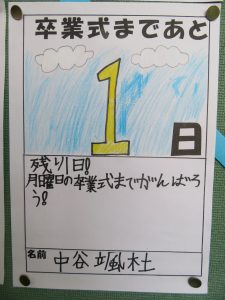 卒業式まであと
1
日
残り1日!
月曜日の卒業式までがんばろ
う!
名前 中谷 颯杜